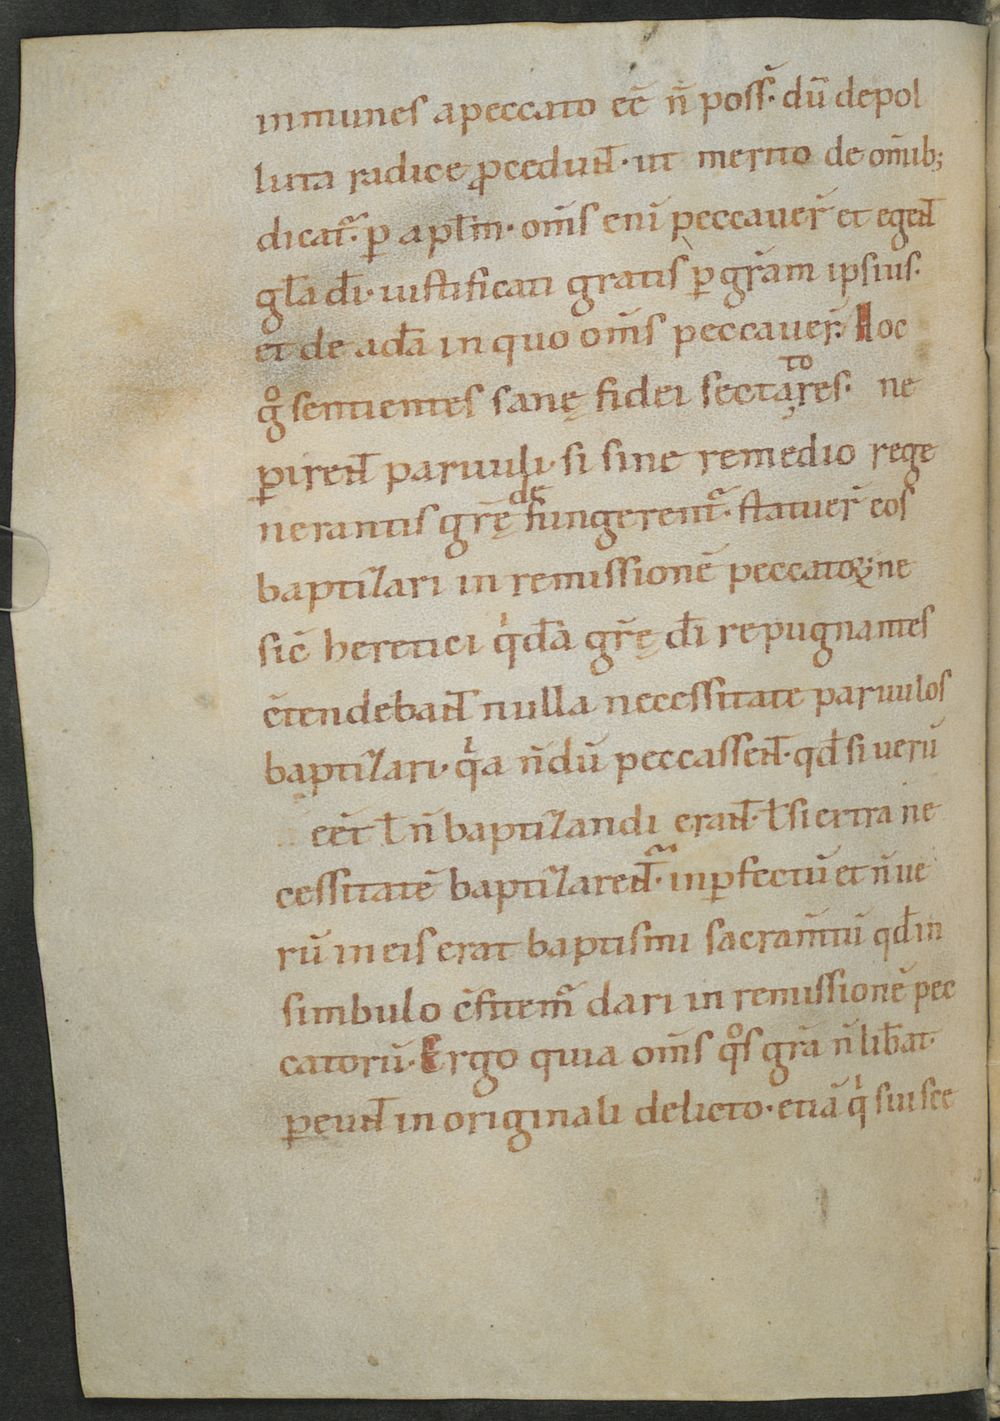 inmunes apeccato eē n̄ poss̄· dū depol
luta radice ꝓcedunt· ut merito de om̄ib;
dicat᷑· ꝑ apl̄m· om̄s enī peccauer̄ et egent
gl̄a dī· iustificati gratis ꝑ grām ipsius·
et de adā in quo om̄s peccauer̄· hoc
gͦ sentientes sanę fidei sectatores· ne
ꝑirent paruuli· si sine remedio rege
nerantis gr̄ę defungerent᷑· statuer̄ eos
baptizari in remissionē peccatoꝝ; ne
sic̄ heretici qͥdā gr̄ę dī repugnantes
c̄tendebant nulla necessitate paruulos
baptizari· qͥa n̄dū peccassent· qd̄ si uerū
eēt ł n̄ baptizandi erant· ł si extra ne
cessitatē baptizarent᷑· inꝑfectū et n̄ ue
rū in eis erat baptismi sacram̄tū qd̄ in
simbulo c̄fitem᷑ dari in remissionē pec
catorū· Ergo quia om̄s qͦs grā n̄ lib̄at·
ꝑeunt in originali delicto· etiā qͥ sui sce